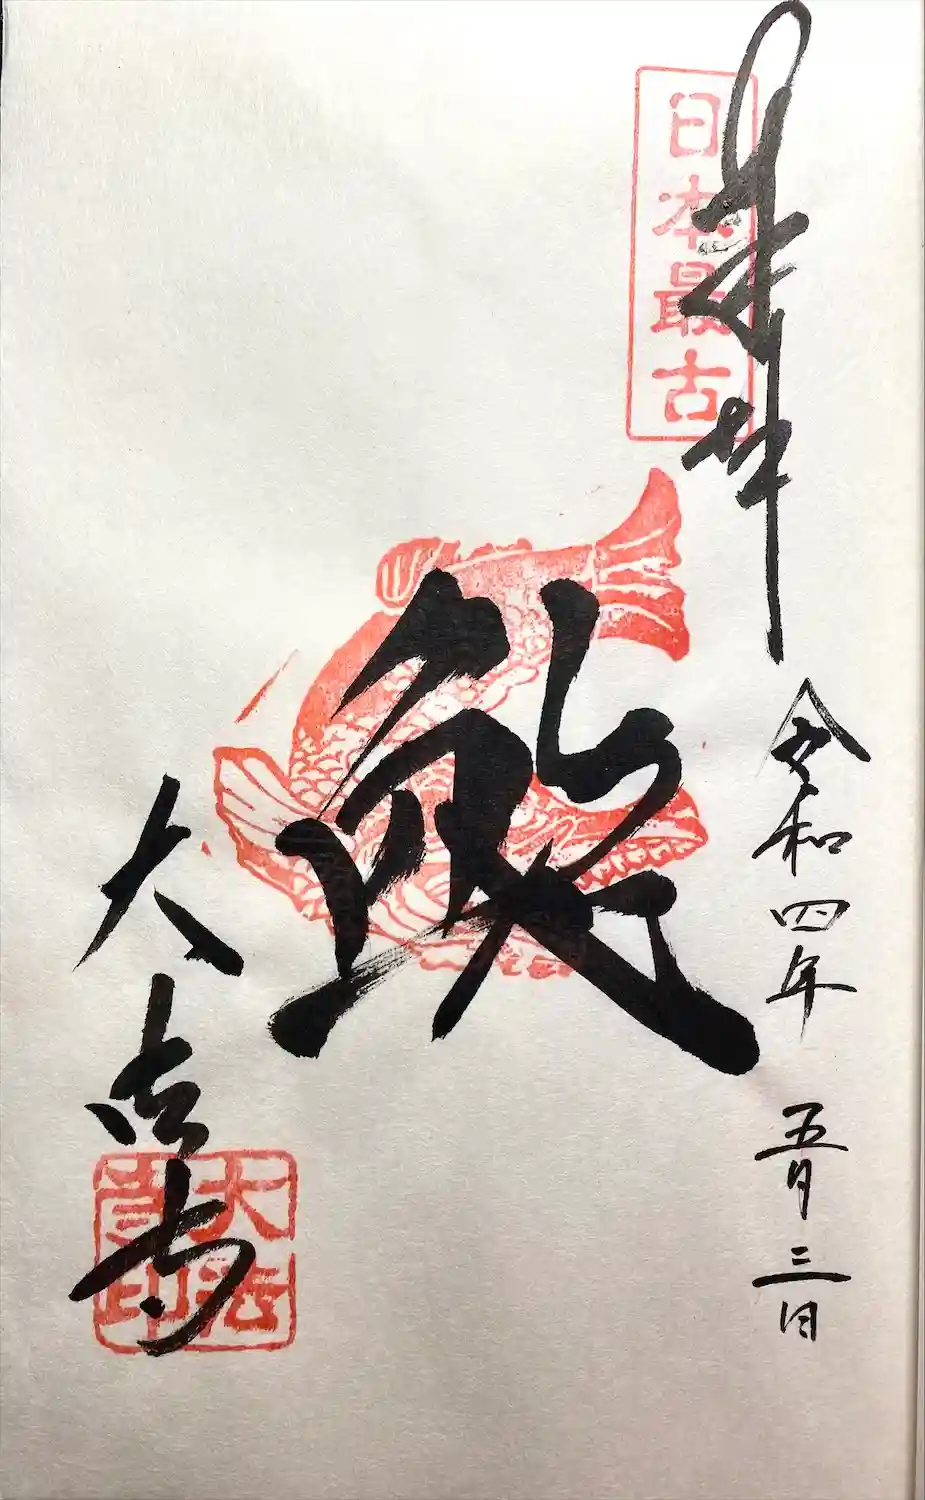 奉拝
日本最古
令和四年 五月 三日
鯱
大法寺
大法寺印